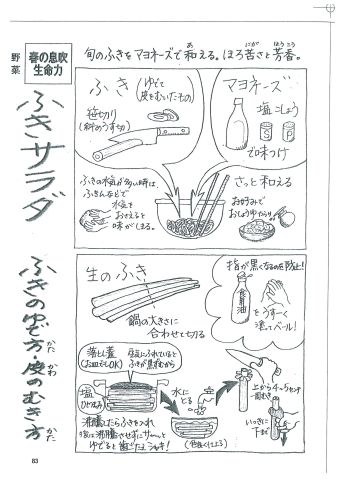 野菜
春の息吹
生命力
ふきサラダ
旬のふきをマヨネーズで和える。ほろ苦さと芳香。
あ
にが
ほうこう
ふき
(ゆでて
皮をむいたもの)
笹切り
(斜めうす切)
マヨネーズ
塩こしょう
S
P
で味つけ
ふきの水気が多い時は、
ふきんなどで
水気を
おさえると
味がしまる。
さっと和える
お好みで
おしょうゆちょっぴり
ふきのゆで方・皮のむき方
かた
かわ
かた
生のふき
鍋の大きさに
合わせて切る
指が黒くなるのを防止!
食用油
をうすく
塗ってベール!
落とし蓋
(お皿でもOK)
空気にふれていると
ふきが黒ずむから
塩
ひとつまみ
水に
とる
沸騰したらふきを入れ
ゆでると歯ごたえシャキ!
(色よくしよう)
上から4〜5センチ
一周むき
いっきに
下まで
83